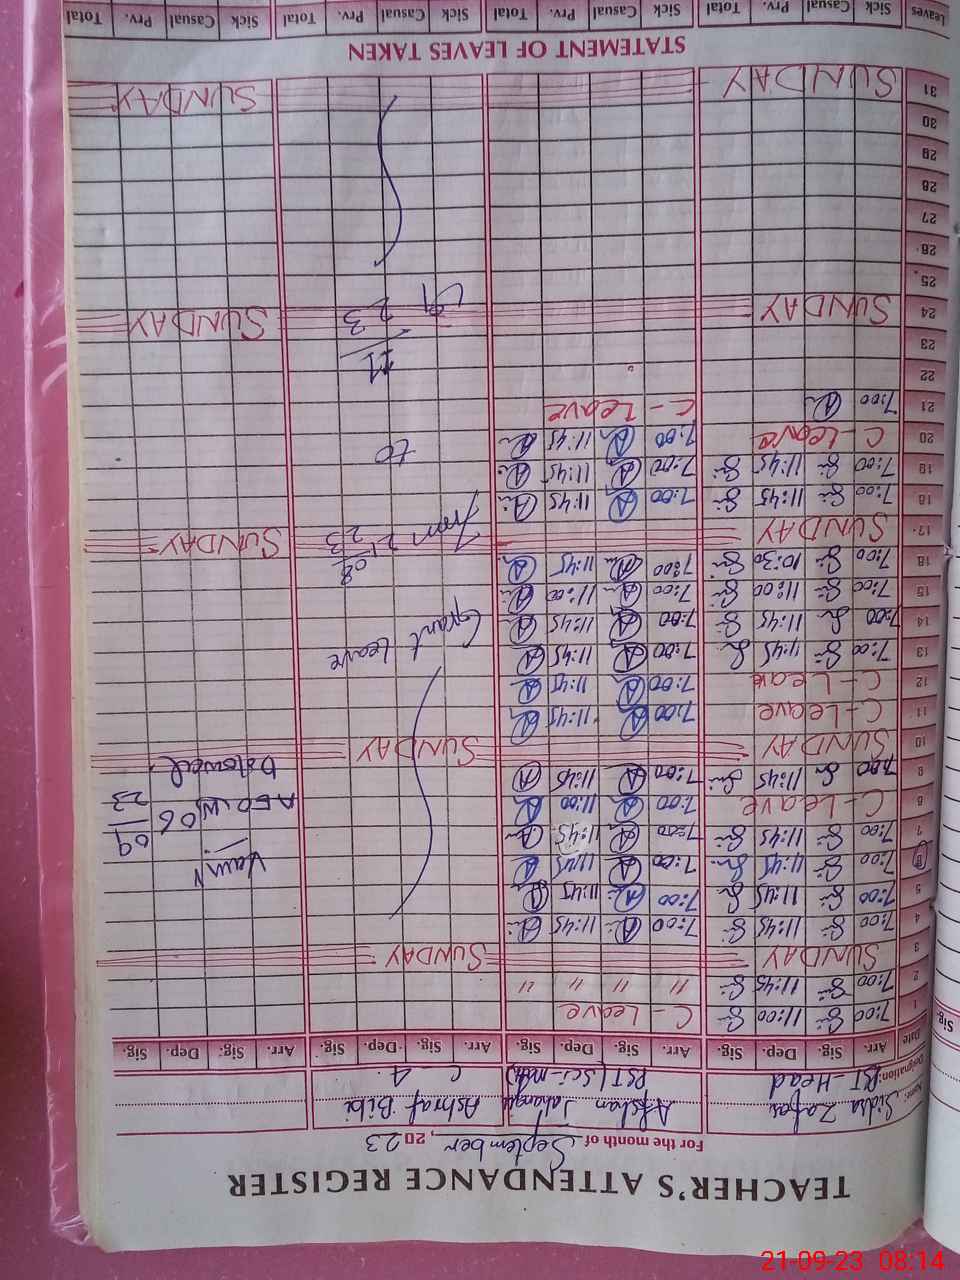 TEACHER'S ATTENDANCE REGISTER
For the month of September, 2023
Name: Sidra Zafar Afshan Jahangir Ashraf Bibi
Designation: PST-Head PST (Sci-math) C-4
Date Arr. Sig. Dep. Sig. Arr. Sig. Dep. Sig. Arr. Sig. Dep. Sig. Arr. Sig. Dep. Sig.
1 7:00 11:00 C-Leave
2 7:00 11:45 " " " "
3 SUNDAY SUNDAY
4 7:00 11:45 7:00 11:45
5 7:00 11:45 7:00 11:45
6 7:00 11:45 7:00 11:45
7 7:00 11:45 7:00 11:45 09
8 C-Leave 7:00 11:00 AEO 06 23
9 7:00 11:45 7:00 11:45
10 SUNDAY SUNDAY
11 C-Leave 7:00 11:45
12 C-Leave 7:00 11:45
13 7:00 11:45 7:00 11:45 Grant Leave
14 7:00 11:45 7:00 11:45
15 7:00 11:00 7:00 11:00
16 7:00 10:30 7:00 11:45 08
17 SUNDAY From 21 23 SUNDAY
18 7:00 11:45 7:00 11:45
19 7:00 11:45 7:00 11:45 to
20 C-Leave 7:00 11:45
21 7:00 C-Leave
22
23 11
24 SUNDAY 23 SUNDAY
25
26
27
28
29
30
31 SUNDAY SUNDAY
STATEMENT OF LEAVES TAKEN
Leaves Sick Casual Prv. Total Sick Casual Prv. Total Sick Casual Prv. Total Sick Casual Prv. Total
Sig.
21-09-23 08:14